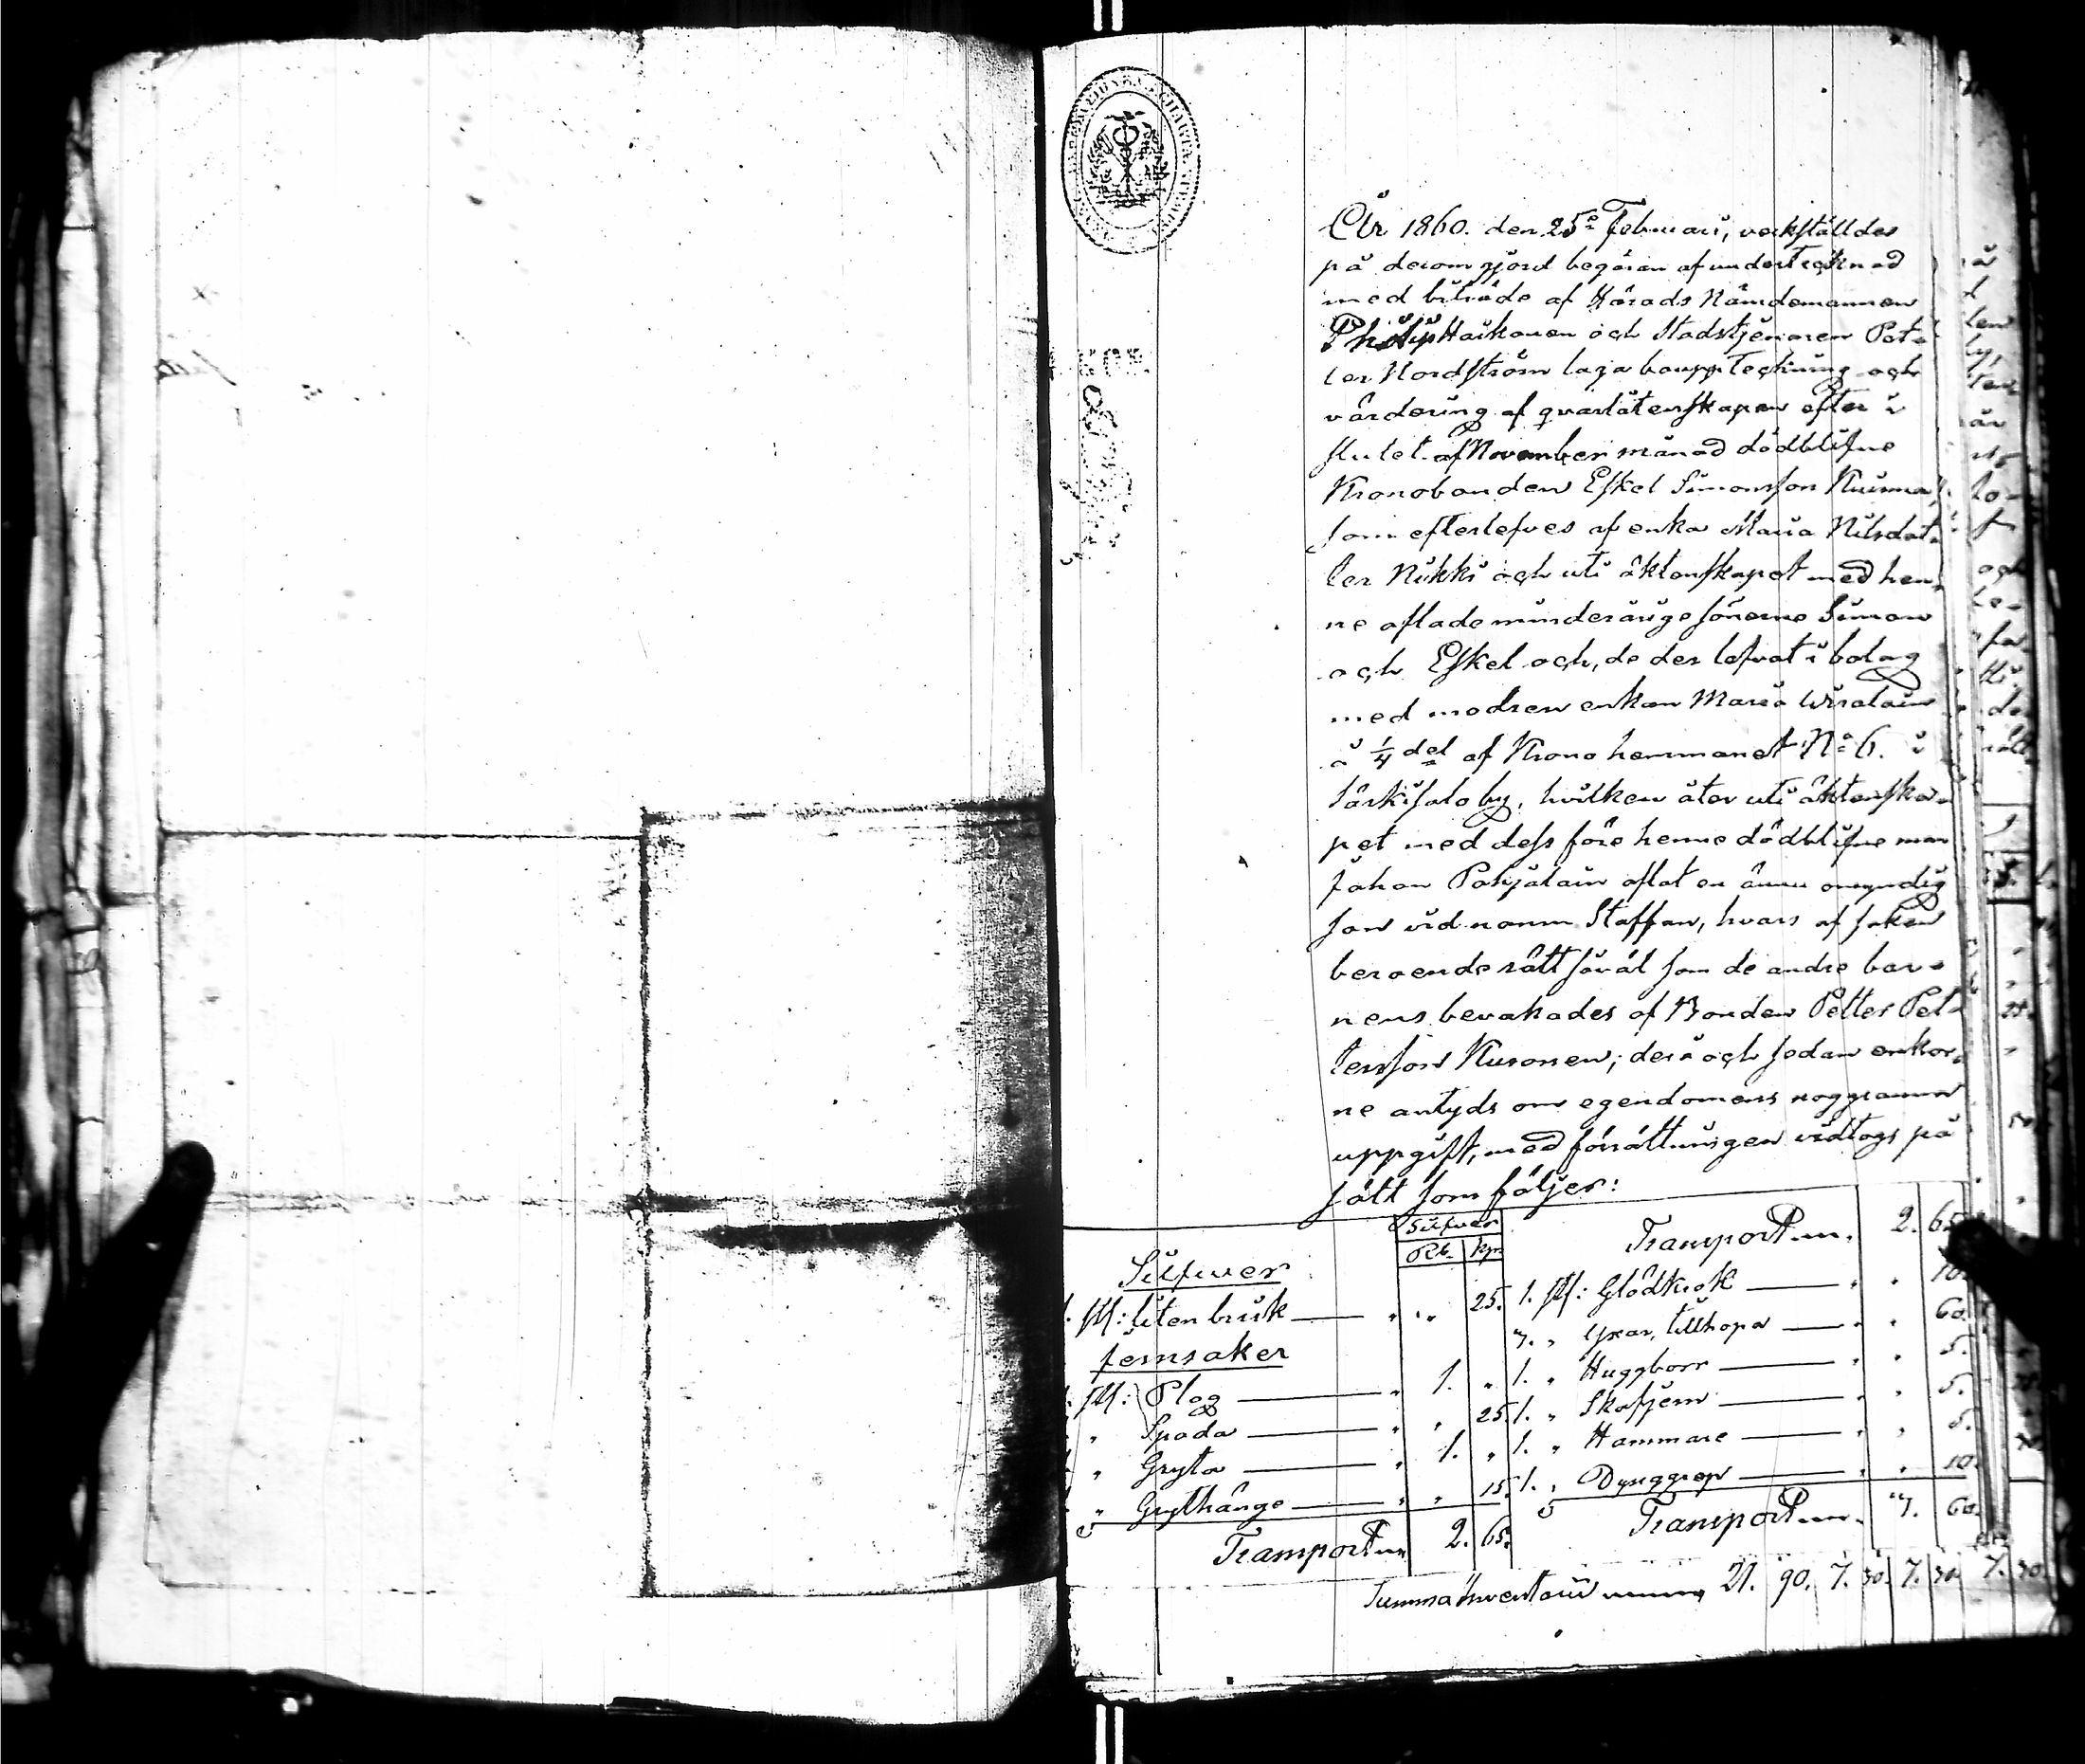 År 1860. den 25e Februari, verkställdes
på derom gjord begäran af undertecknad
med biträde af Härads Nämdemannen
Philip Haikonen och Stadstjenaren Pet-
ter Nordström laga bouppteckning och
värdering af qvarlåtenskapen efter i
slutet af November månad dödblifne
Kronobonden Eskel Simonsson Kuisma,
som efterlefves af enka Maria Nilsdot-
ter Nikki och uti äktenskapet med hen-
ne aflade minderårige sönerne Simon
och Eskel och, de der lefvat i bolag
med modren enkan Maria Wiralain
å 1/4 del af Krono hemmanet No 6. i
Särkisalo by, hvilken åter uti äktenska-
pet med dess före henne dödblifne man
Johan Pohjalain aflat en ännu omyndig
son vid namn Staffan, hvars af saken
beroende rätt såväl som de andre bar-
nens bevakades af Bonden Petter Pet-
tersson Kuronen; derå och sedan enkor-
ne antyds om egendomens noggranna
uppgift, med förrättningen vidtogs på
sätt som följer:
Silfver
Rb. Kp.
Silfwer
st: liten brisk " " 25.
Jernsaker
st: Plog " 1. "
" Spada " " 25
" Gryta " 1. "
" Grythänge " " 15.
Transport 2. 65.
Transport 2. 65
1. st: Glödkrok " " 10.
7. " Yxar, tillhopa " " 60.
1. " Huggborr " " 5.
1. " Skafjern " " 5.
1. " Hammare " " 5.
1. " Dynggrep " " 10.
Transport 60.
Summa Inventarii 21. 90. 7. 30. 7. 30. 7. 30.